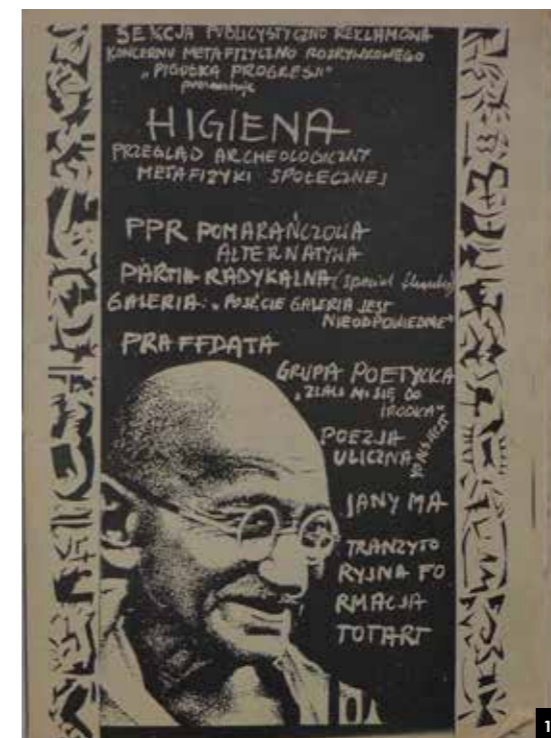 SEKCJA PUBLICYSTYCZNO REKLAMOWA
KONCERNU METAFIZYCZNO ROZRYWKOWEGO
„PIGUŁKA PROGRESJI"
prezentuje
HIGIENA
PRZEGLĄD ARCHEOLOGICZNY
METAFIZYKI SPOŁECZNEJ
PPR POMARAŃCZOWA
ALTERNATYWA
PARTIA RADYKALNA (special
GALERIA: „POJĘCIE GALERIA JEST
NIEODPOWIEDNIE"
PRAFFDATA
GRUPA POETYCKA
„ZLALI MI SIĘ DO
ŚRODKA"
POEZJA
ULICZNA
JANY MA
TRANZYTO
RYJNA FO
RMACJA
TOTART
1